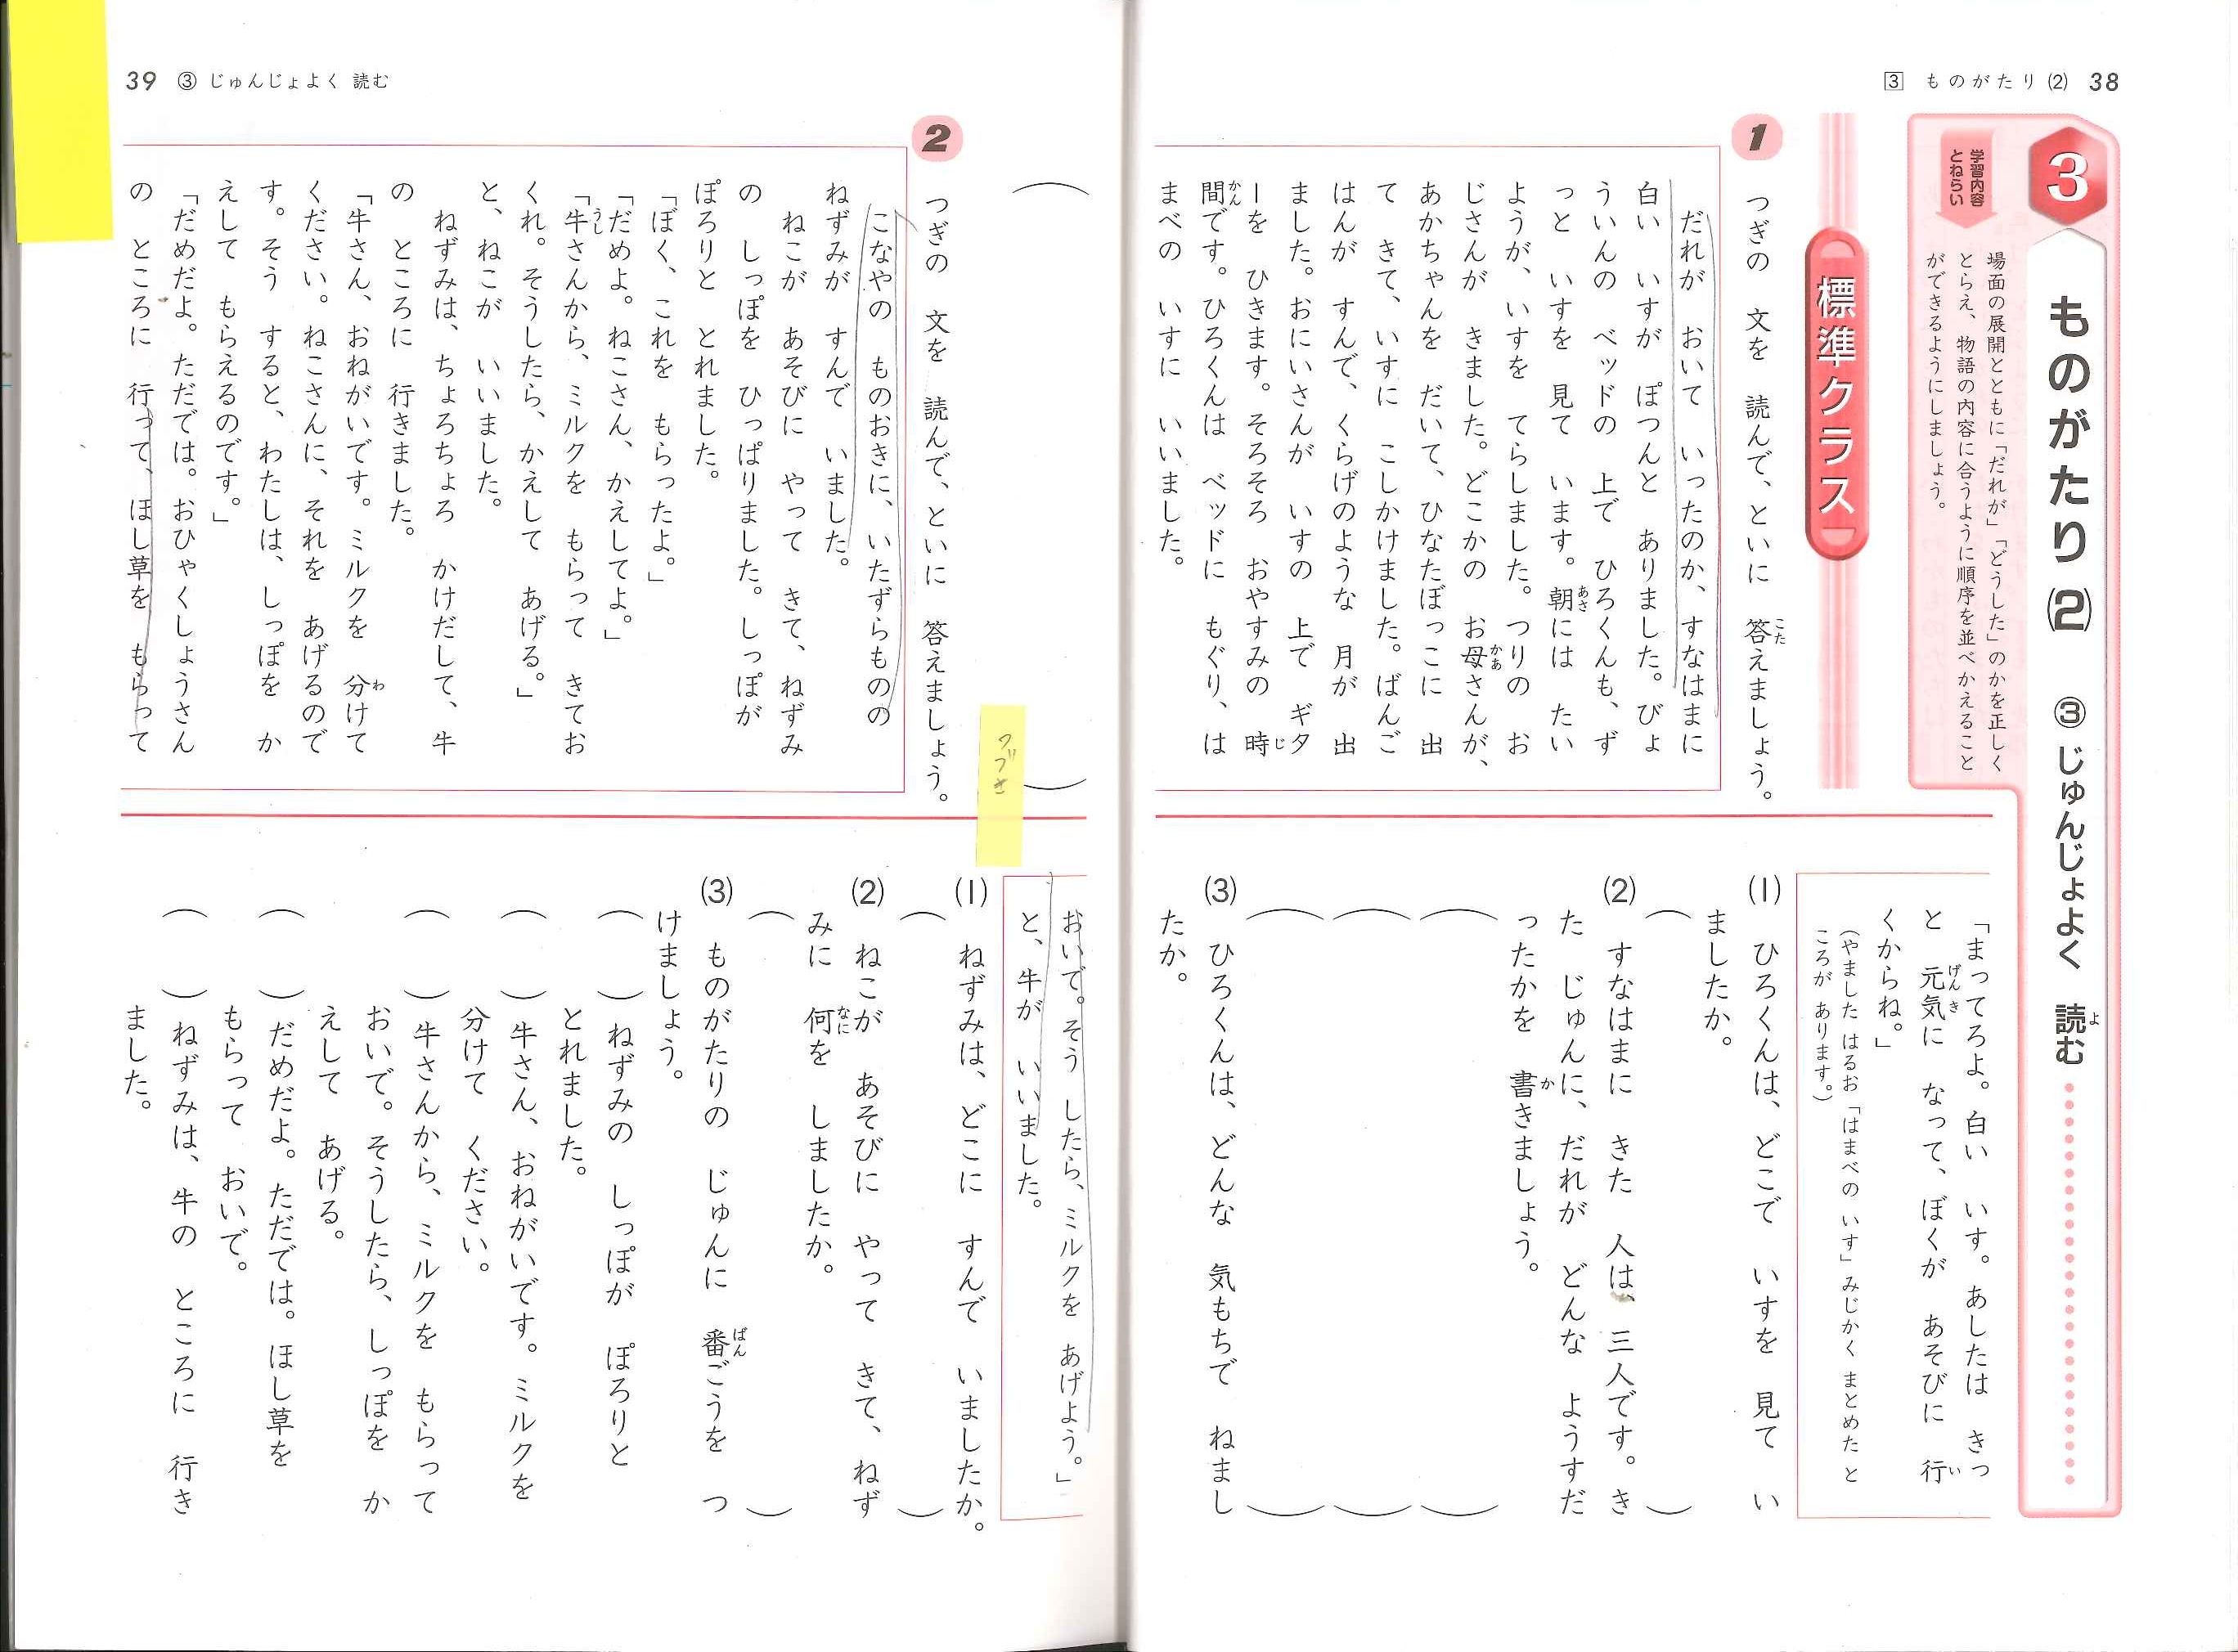 3 ものがたり (2) 38
3
ものがたり (2) ③ じゅんじょよく 読む
学習内容
とねらい
場面の展開とともに「だれが」「どうした」のかを正しく
とらえ、物語の内容に合うように順序を並べかえること
ができるようにしましょう。
標準クラス
1 つぎの 文を 読んで、といに 答えましょう。
だれが おいて いったのか、すなはまに
白い いすが ぽつんと ありました。びょ
ういんの ベッドの 上で ひろくんも、ず
っと いすを 見て います。朝には たい
ようが、いすを てらしました。つりの お
じさんが きました。どこかの お母さんが、
あかちゃんを だいて、ひなたぼっこに 出
て きて、いすに こしかけました。ばんご
はんが すんで、くらげのような 月が 出
ました。おにいさんが いすの 上で ギタ
ーを ひきます。そろそろ おやすみの 時
間です。ひろくんは ベッドに もぐり、は
まべの いすに いいました。
「まってろよ。白い いす。あしたは きっ
と 元気に なって、ぼくが あそびに 行
くからね。」
(やました はるお「はまべの いす」みじかく まとめた と
ころが あります。)
(1) ひろくんは、どこで いすを 見て い
ましたか。
(2) すなはまに きた 人は、三人です。き
た じゅんに、だれが どんな ようすだ
ったかを 書きましょう。
(3) ひろくんは、どんな 気もちで ねまし
たか。
39 ③ じゅんじょよく 読む
2 つぎの 文を 読んで、といに 答えましょう。
こなやの ものおきに、いたずらものの
ねずみが すんで いました。
ねこが あそびに やって きて、ねずみ
の しっぽを ひっぱりました。しっぽが
ぽろりと とれました。
「ぼく、これを もらったよ。」
「だめよ。ねこさん、かえしてよ。」
「牛さんから、ミルクを もらって きてお
くれ。そうしたら、かえして あげる。」
と、ねこが いいました。
ねずみは、ちょろちょろ かけだして、牛
の ところに 行きました。
「牛さん、おねがいです。ミルクを 分けて
ください。ねこさんに、それを あげるので
す。そう すると、わたしは、しっぽを か
えして もらえるのです。」
「だめだよ。ただでは。おひゃくしょうさん
の ところに 行って、ほし草を もらって
つづき
おいで。そう したら、ミルクを あげよう。」
と、牛が いいました。
(1) ねずみは、どこに すんで いましたか。
(2) ねこが あそびに やって きて、ねず
みに 何を しましたか。
(3) ものがたりの じゅんに 番ごうを つ
けましょう。
( ) ねずみの しっぽが ぽろりと
とれました。
( ) 牛さん、おねがいです。ミルクを
分けて ください。
( ) 牛さんから、ミルクを もらって
おいで。そうしたら、しっぽを か
えして あげる。
( ) だめだよ。ただでは。ほし草を
もらって おいで。
( ) ねずみは、牛の ところに 行き
ました。